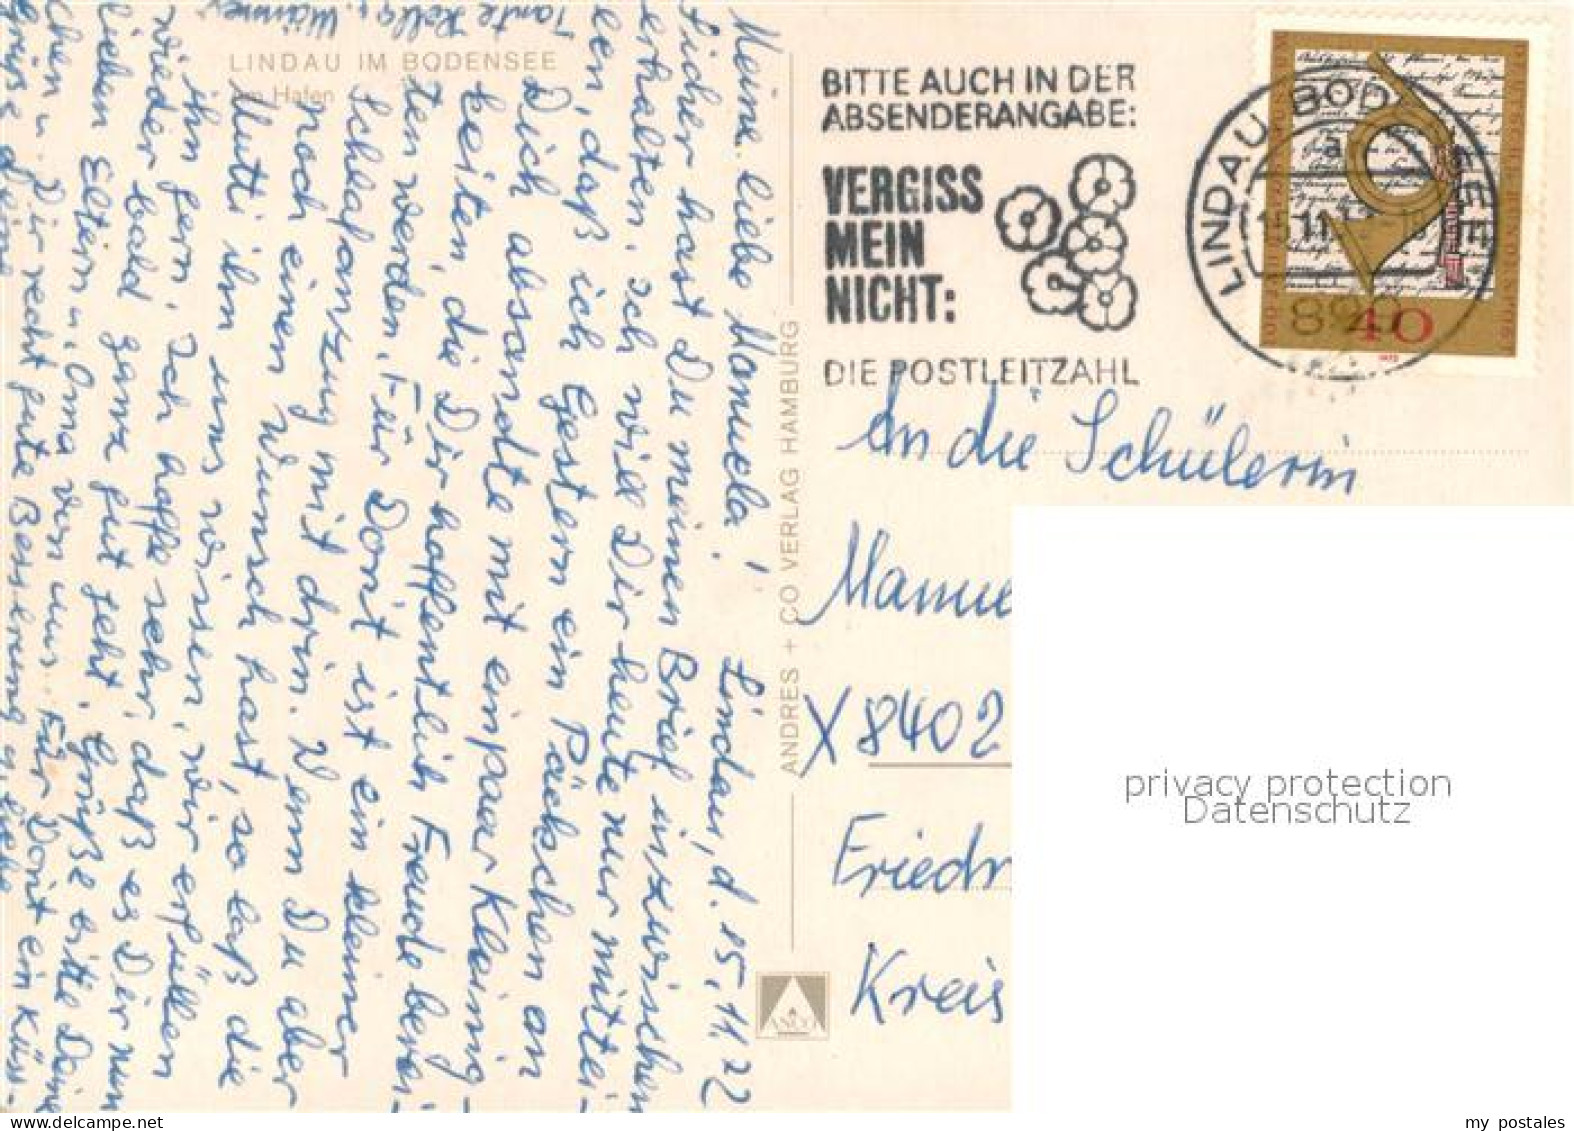 LINDAU IM BODENSEE
Am Hafen
Meine liebe Manuela! Lindau, d. 15.11.72
Sicher hast Du meinen Brief inzwischen
erhalten. Ich will Dir heute nur mittei-
len, daß ich Gestern ein Päckchen an
Dich absandte mit einpaar Kleinig-
keiten, die Dir hoffentlich Freude berei-
ten werden. Für Dorit ist ein kleiner
Schlafanzug mit drin. Wenn Du aber
noch einen Wunsch hast, so laß die
Mutti ihm uns wissen, wir erfüllen
ihn gern. Ich hoffe sehr, daß es Dir nun
wieder bald ganz gut geht. Grüße bitte Deine
lieben Eltern u. Oma von uns. Für Dorit ein Küss-
chen u. Dir recht gute Besserung u. liebe
Grüße Deine
Tante Hella u. Männer
ANDRES + CO VERLAG HAMBURG
ANCO
BITTE AUCH IN DER
ABSENDERANGABE:
VERGISS
MEIN
NICHT:
DIE POSTLEITZAHL
LINDAU BODENSEE
a
15.11.
899
40
1972
An die Schülerin
Manue
X 8402
Friedr
Kreis
privacy protection
Datenschutz
my postales